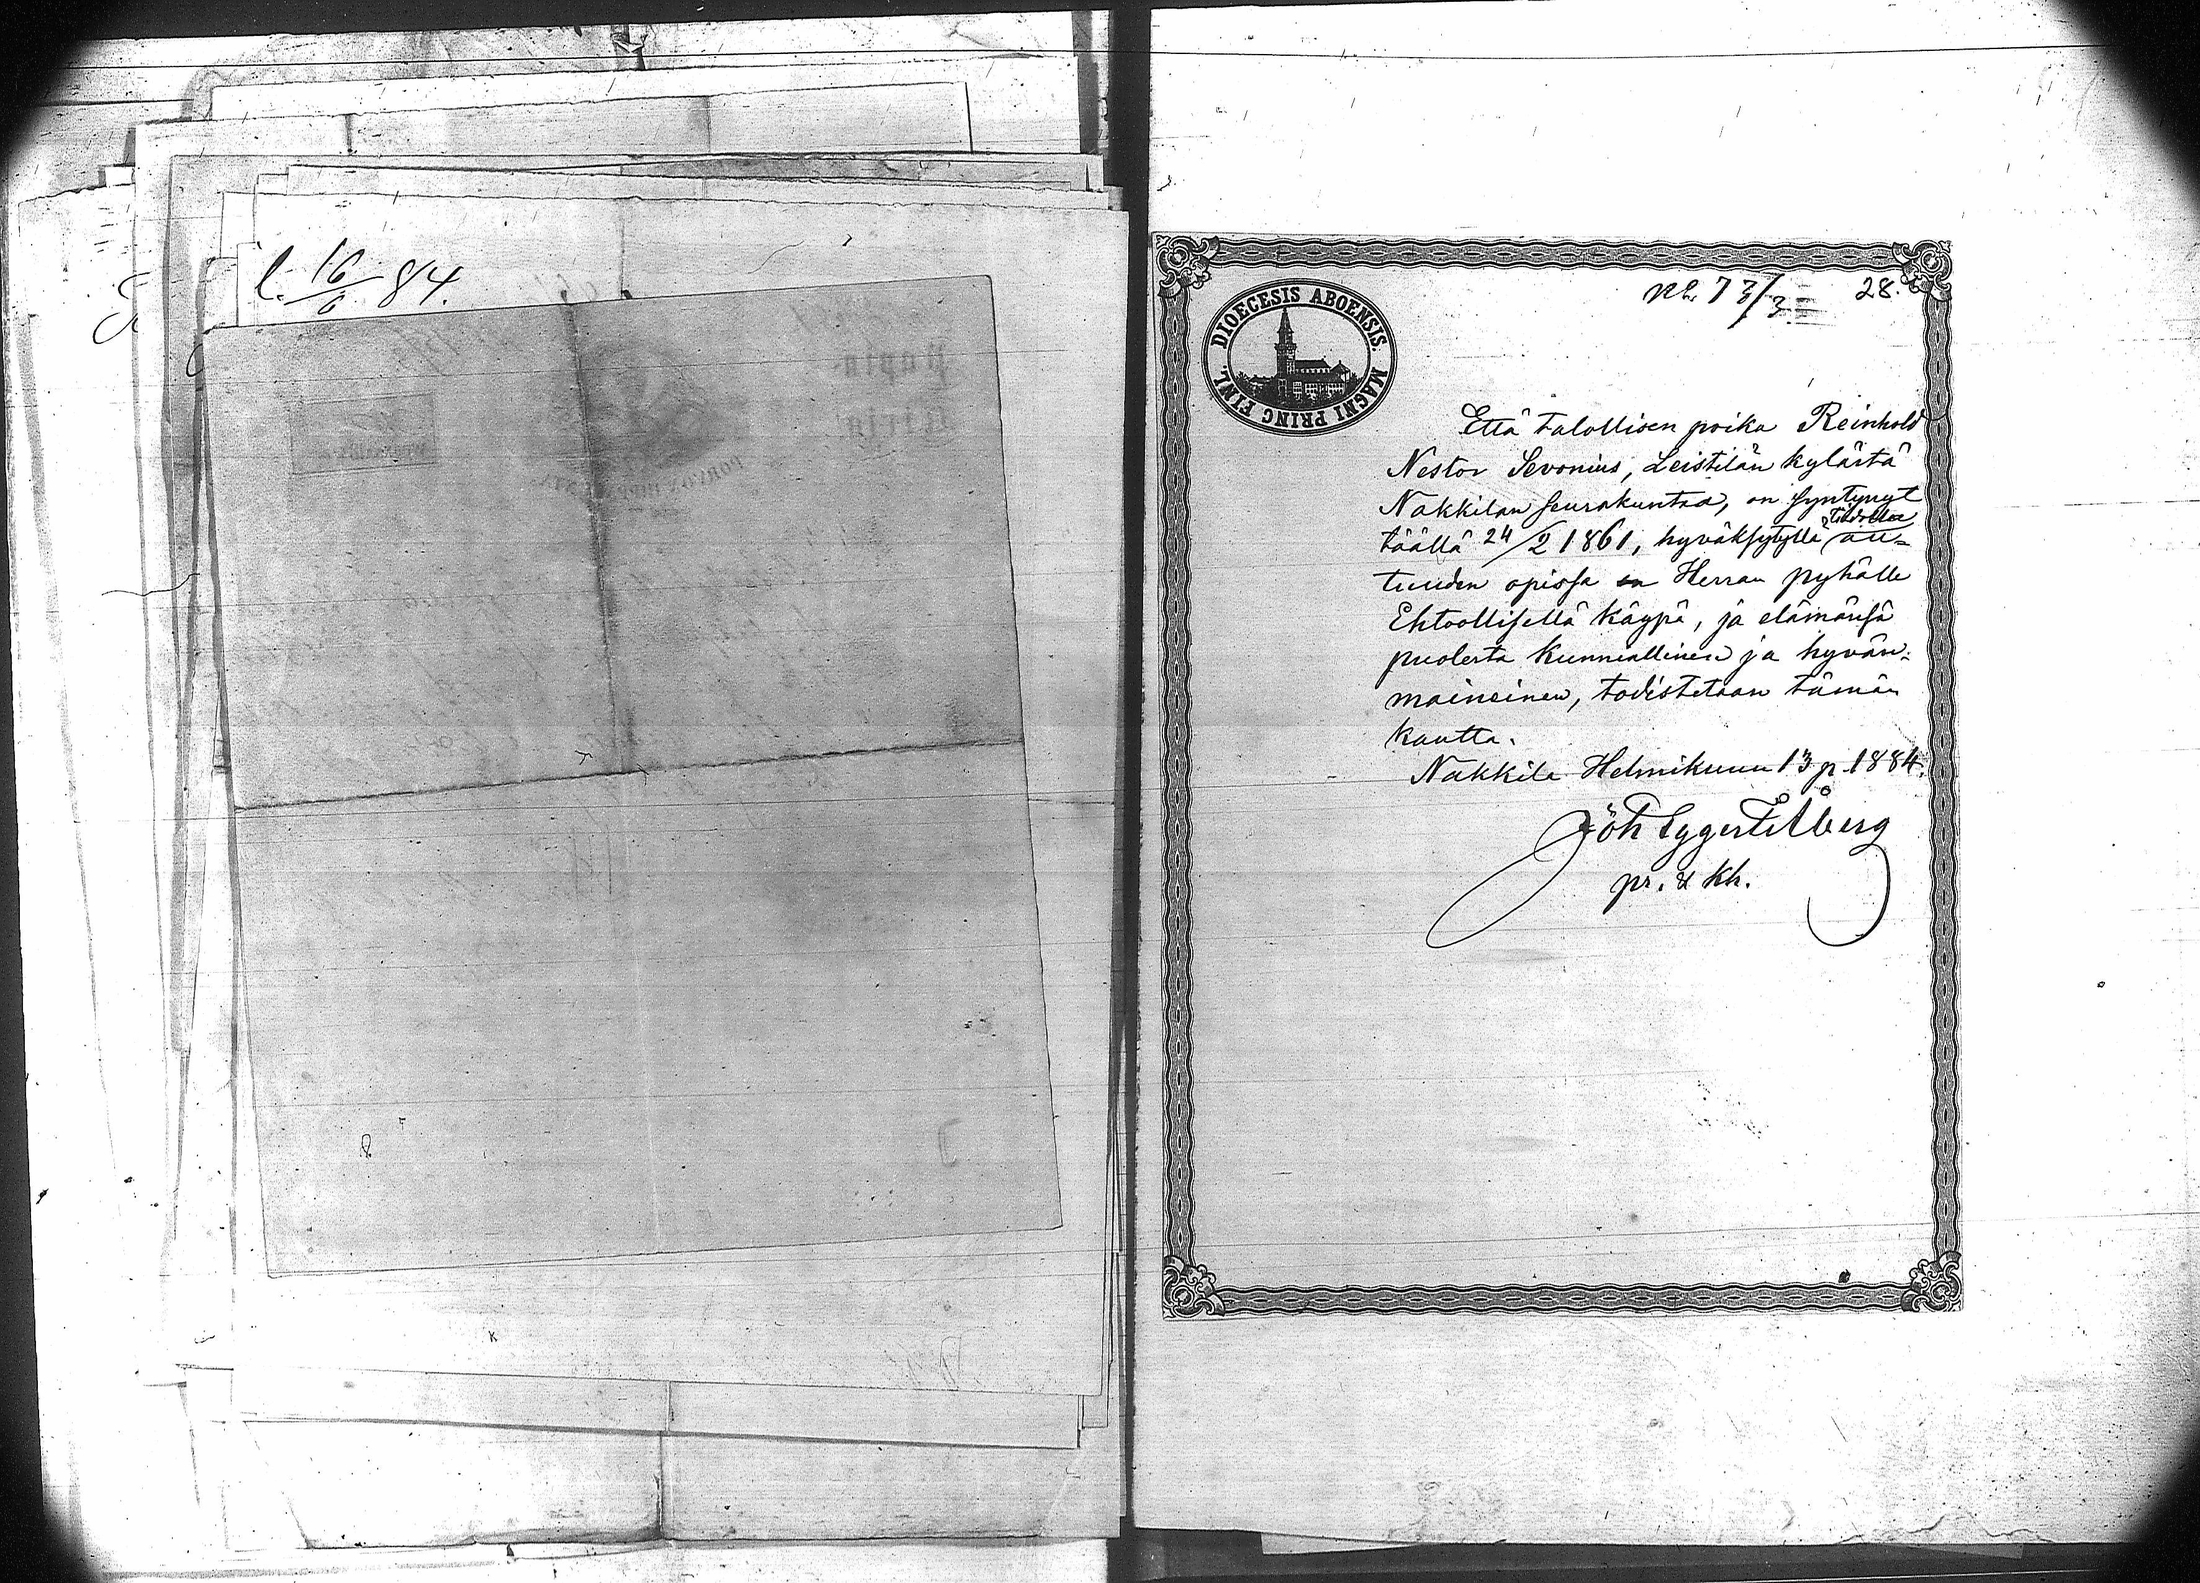 l. 16/6 84.
28.
DIOECESIS ABOENSIS. MAGNI PRINC. FINL.
Että talollisen poika Reinhold
Nestor Sevonius, Leistilän kylästä
Nakkilan seurakuntaa, on syntynyt
täällä 24/2 1861, hyväksytyllä tiedolla
tuuden opissa Herran pyhälle
Ehtoollisella käypä, ja elämänsä
puolesta kunniallinen ja hyvän-
maineinen, todistetaan tämän
kautta.
Nakkila Helmikuun 13 p. 1884.
pr. & kh.